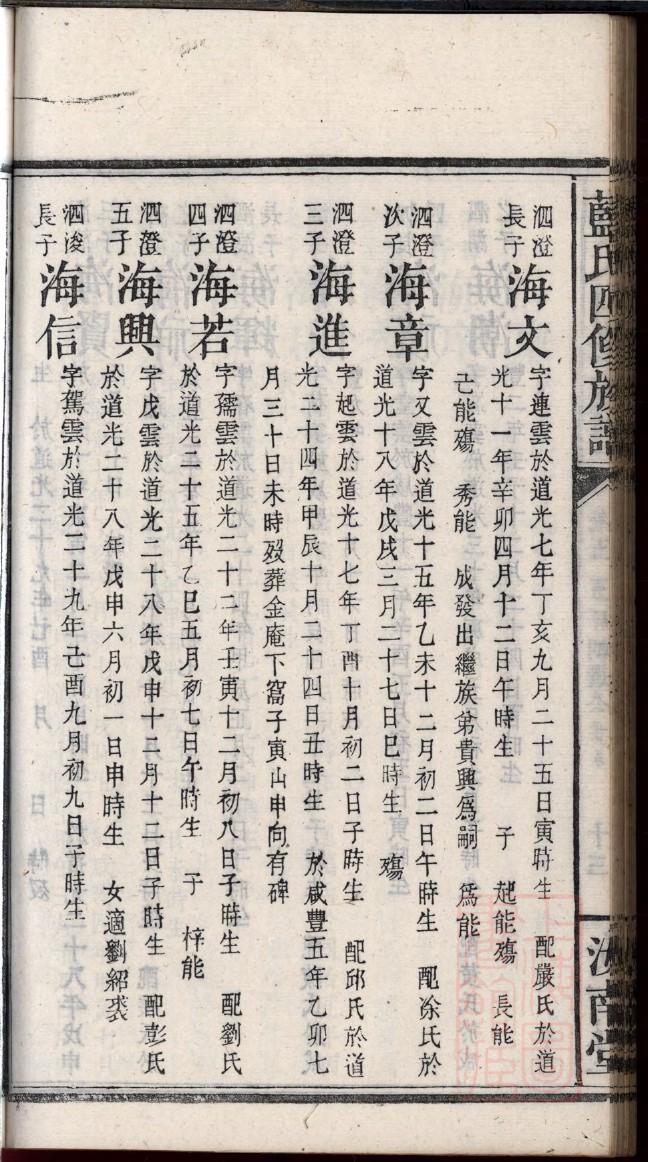 藍氏四修族譜
十三
汝南堂
泗澄
長子
海文
字連雲於道光七年丁亥九月二十五日寅時生 配嚴氏於道
光十一年辛卯四月十二日午時生 子 起能殤 長能
亡能殤 秀能 成發出繼族弟貴興為嗣 為能
泗澄
次子
海章
字又雲於道光十五年乙未十二月初二日午時生 配涂氏於
道光十八年戊戌三月二十七日巳時生 殤
泗澄
三子
海進
字起雲於道光十七年丁酉十月初二日子時生 配邱氏於道
光二十四年甲辰十月二十四日丑時生 於咸豐五年乙卯七
月三十日未時歿葬金庵下窩子寅山申向有碑
泗澄
四子
海若
字孺雲於道光二十二年壬寅十二月初八日子時生 配劉氏
於道光二十五年乙巳五月初七日午時生 子 梓能
泗澄
五子
海興
字戊雲於道光二十八年戊申十二月十二日子時生 配彭氏
於道光二十八年戊申六月初一日申時生 女適劉紹裘
泗浚
長子
海信
字駕雲於道光二十九年己酉九月初九日子時生